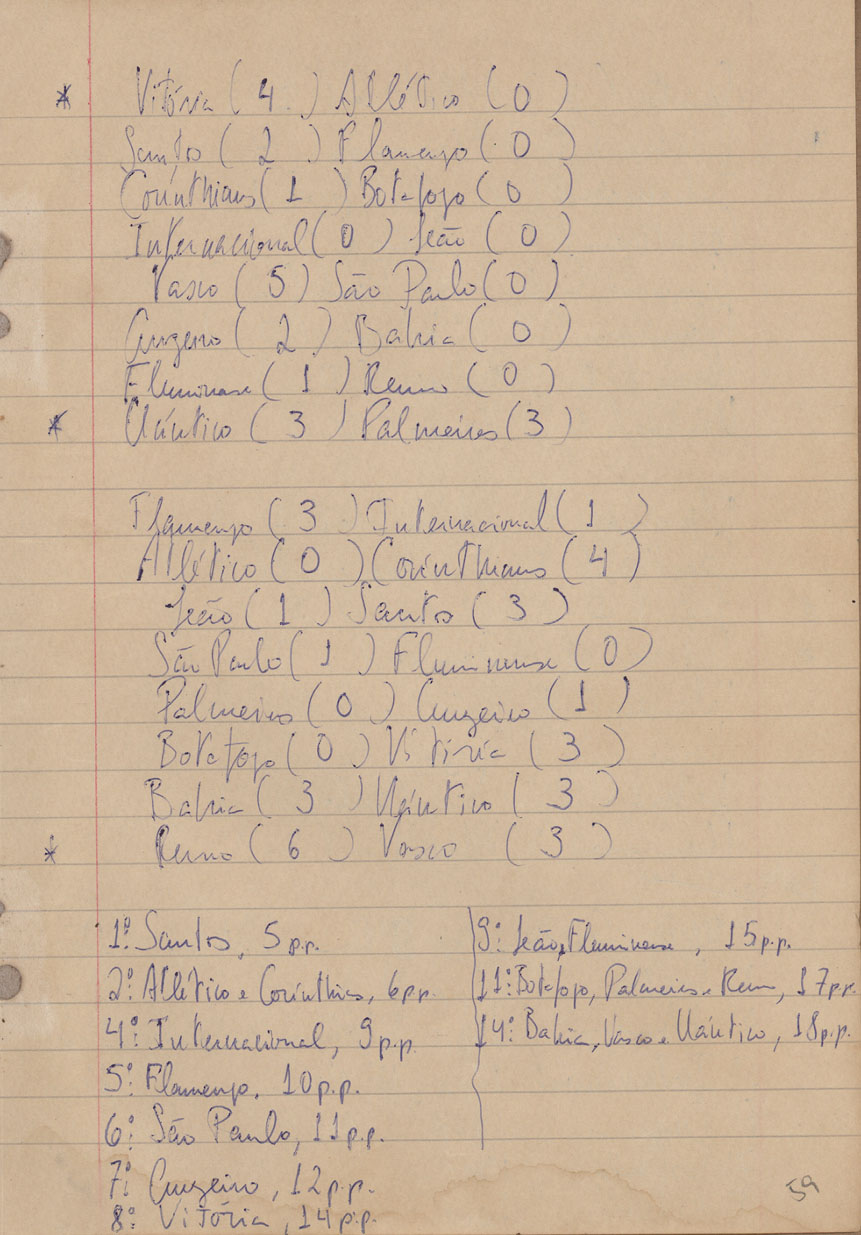 * Vitória ( 4 ) Atlético ( 0 )
Santos ( 2 ) Flamengo ( 0 )
Corinthians ( 1 ) Botafogo ( 0 )
Internacional ( 0 ) Leão ( 0 )
Vasco ( 5 ) São Paulo ( 0 )
Cruzeiro ( 2 ) Bahia ( 0 )
Fluminense ( 1 ) Remo ( 0 )
* Náutico ( 3 ) Palmeiras ( 3 )
Flamengo ( 3 ) Internacional ( 1 )
Atlético ( 0 ) Corinthians ( 4 )
Leão ( 1 ) Santos ( 3 )
São Paulo ( 1 ) Fluminense ( 0 )
Palmeiras ( 0 ) Cruzeiro ( 1 )
Botafogo ( 0 ) Vitória ( 3 )
Bahia ( 3 ) Náutico ( 3 )
* Remo ( 6 ) Vasco ( 3 )
1º: Santos, 5 p.p.
2º: Atlético e Corinthias, 6 p.p.
4º: Internacional, 9 p.p.
5º: Flamengo, 10 p.p.
6º: São Paulo, 11 p.p.
7º: Cruzeiro, 12 p.p.
8º: Vitória, 14 p.p.
9º: Leão, Fluminense, 15 p.p.
11º: Botafogo, Palmeiras e Remo, 17 p.p.
14º: Bahia, Vasco e Náutico, 18 p.p.
59